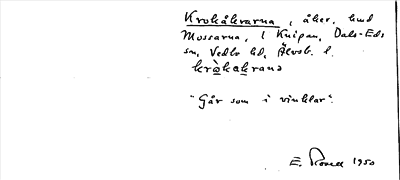 Krokåkrarna, åker, hmd
Mossarna, 1 Knipan, Dals-Eds
sn, Vedbo hd, Älvsb. l.
kròkakrana
"Går som i vinklar".
E. 1950